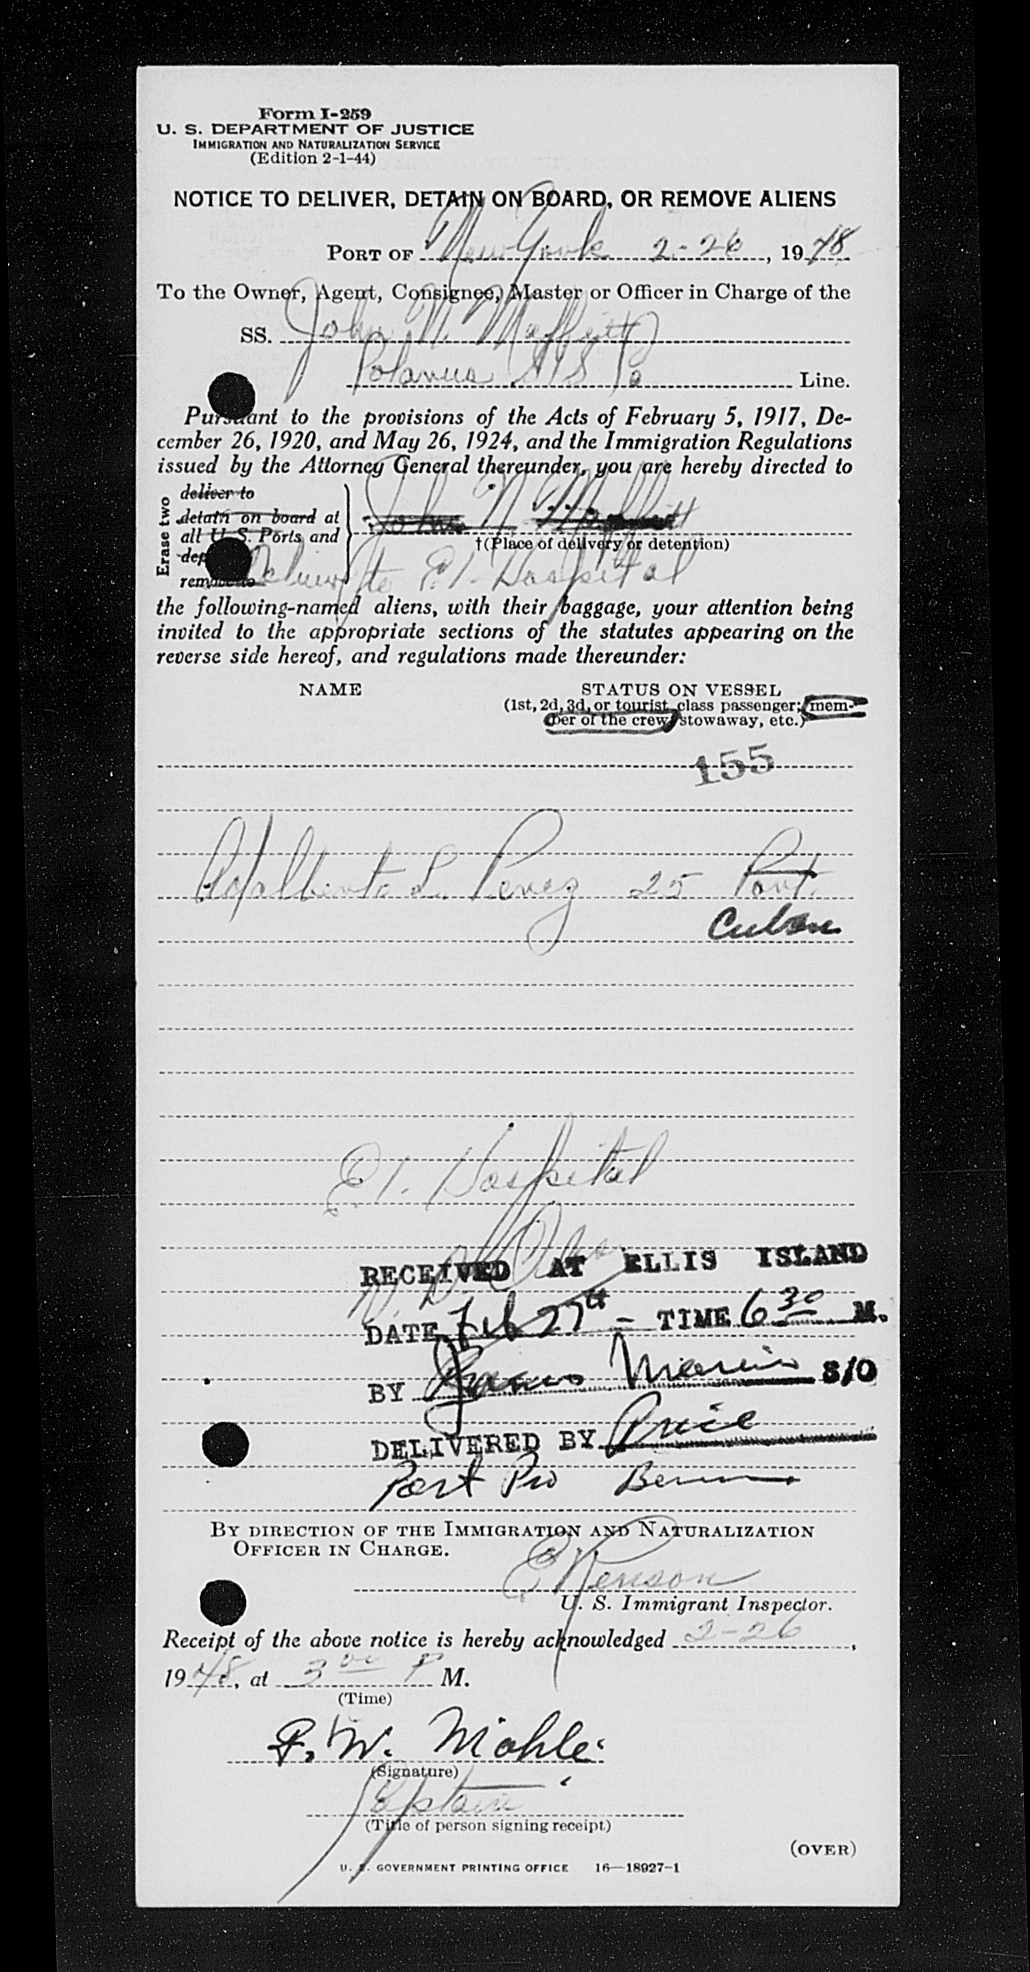 Form I-259
U. S. DEPARTMENT OF JUSTICE
IMMIGRATION AND NATURALIZATION SERVICE
(Edition 2-1-44)
NOTICE TO DELIVER, DETAIN ON BOARD, OR REMOVE ALIENS
PORT OF New York 2-26, 1948
To the Owner, Agent, Consignee, Master or Officer in Charge of the
SS. John N. Maffitt
Polarus S/S Co Line.
Pursuant to the provisions of the Acts of February 5, 1917, De-
cember 26, 1920, and May 26, 1924, and the Immigration Regulations
issued by the Attorney General thereunder, you are hereby directed to
Erase two
deliver to
detain on board at
all U. S. Ports and
remove to
John N. Maffitt
†(Place of delivery or detention)
Deliver to E.I. Hospital
the following-named aliens, with their baggage, your attention being
invited to the appropriate sections of the statutes appearing on the
reverse side hereof, and regulations made thereunder:
NAME STATUS ON VESSEL
(1st, 2d, 3d, or tourist class passenger; mem-
ber of the crew, stowaway, etc.)
155
Adalberto L. Perez 25 Port.
Cuban
E.I. Hospital
RECEIVED AT ELLIS ISLAND
DATE Feb 27th - TIME 6 30 M.
BY S/O
DELIVERED BY Price
Port Pro
BY DIRECTION OF THE IMMIGRATION AND NATURALIZATION
OFFICER IN CHARGE.
U. S. Immigrant Inspector.
Receipt of the above notice is hereby acknowledged 2-26,
1948, at 3 00 P M.
(Time)
W. Mohle
(Signature)
Captain
(Title of person signing receipt)
(OVER)
U. S. GOVERNMENT PRINTING OFFICE 16—18927-1